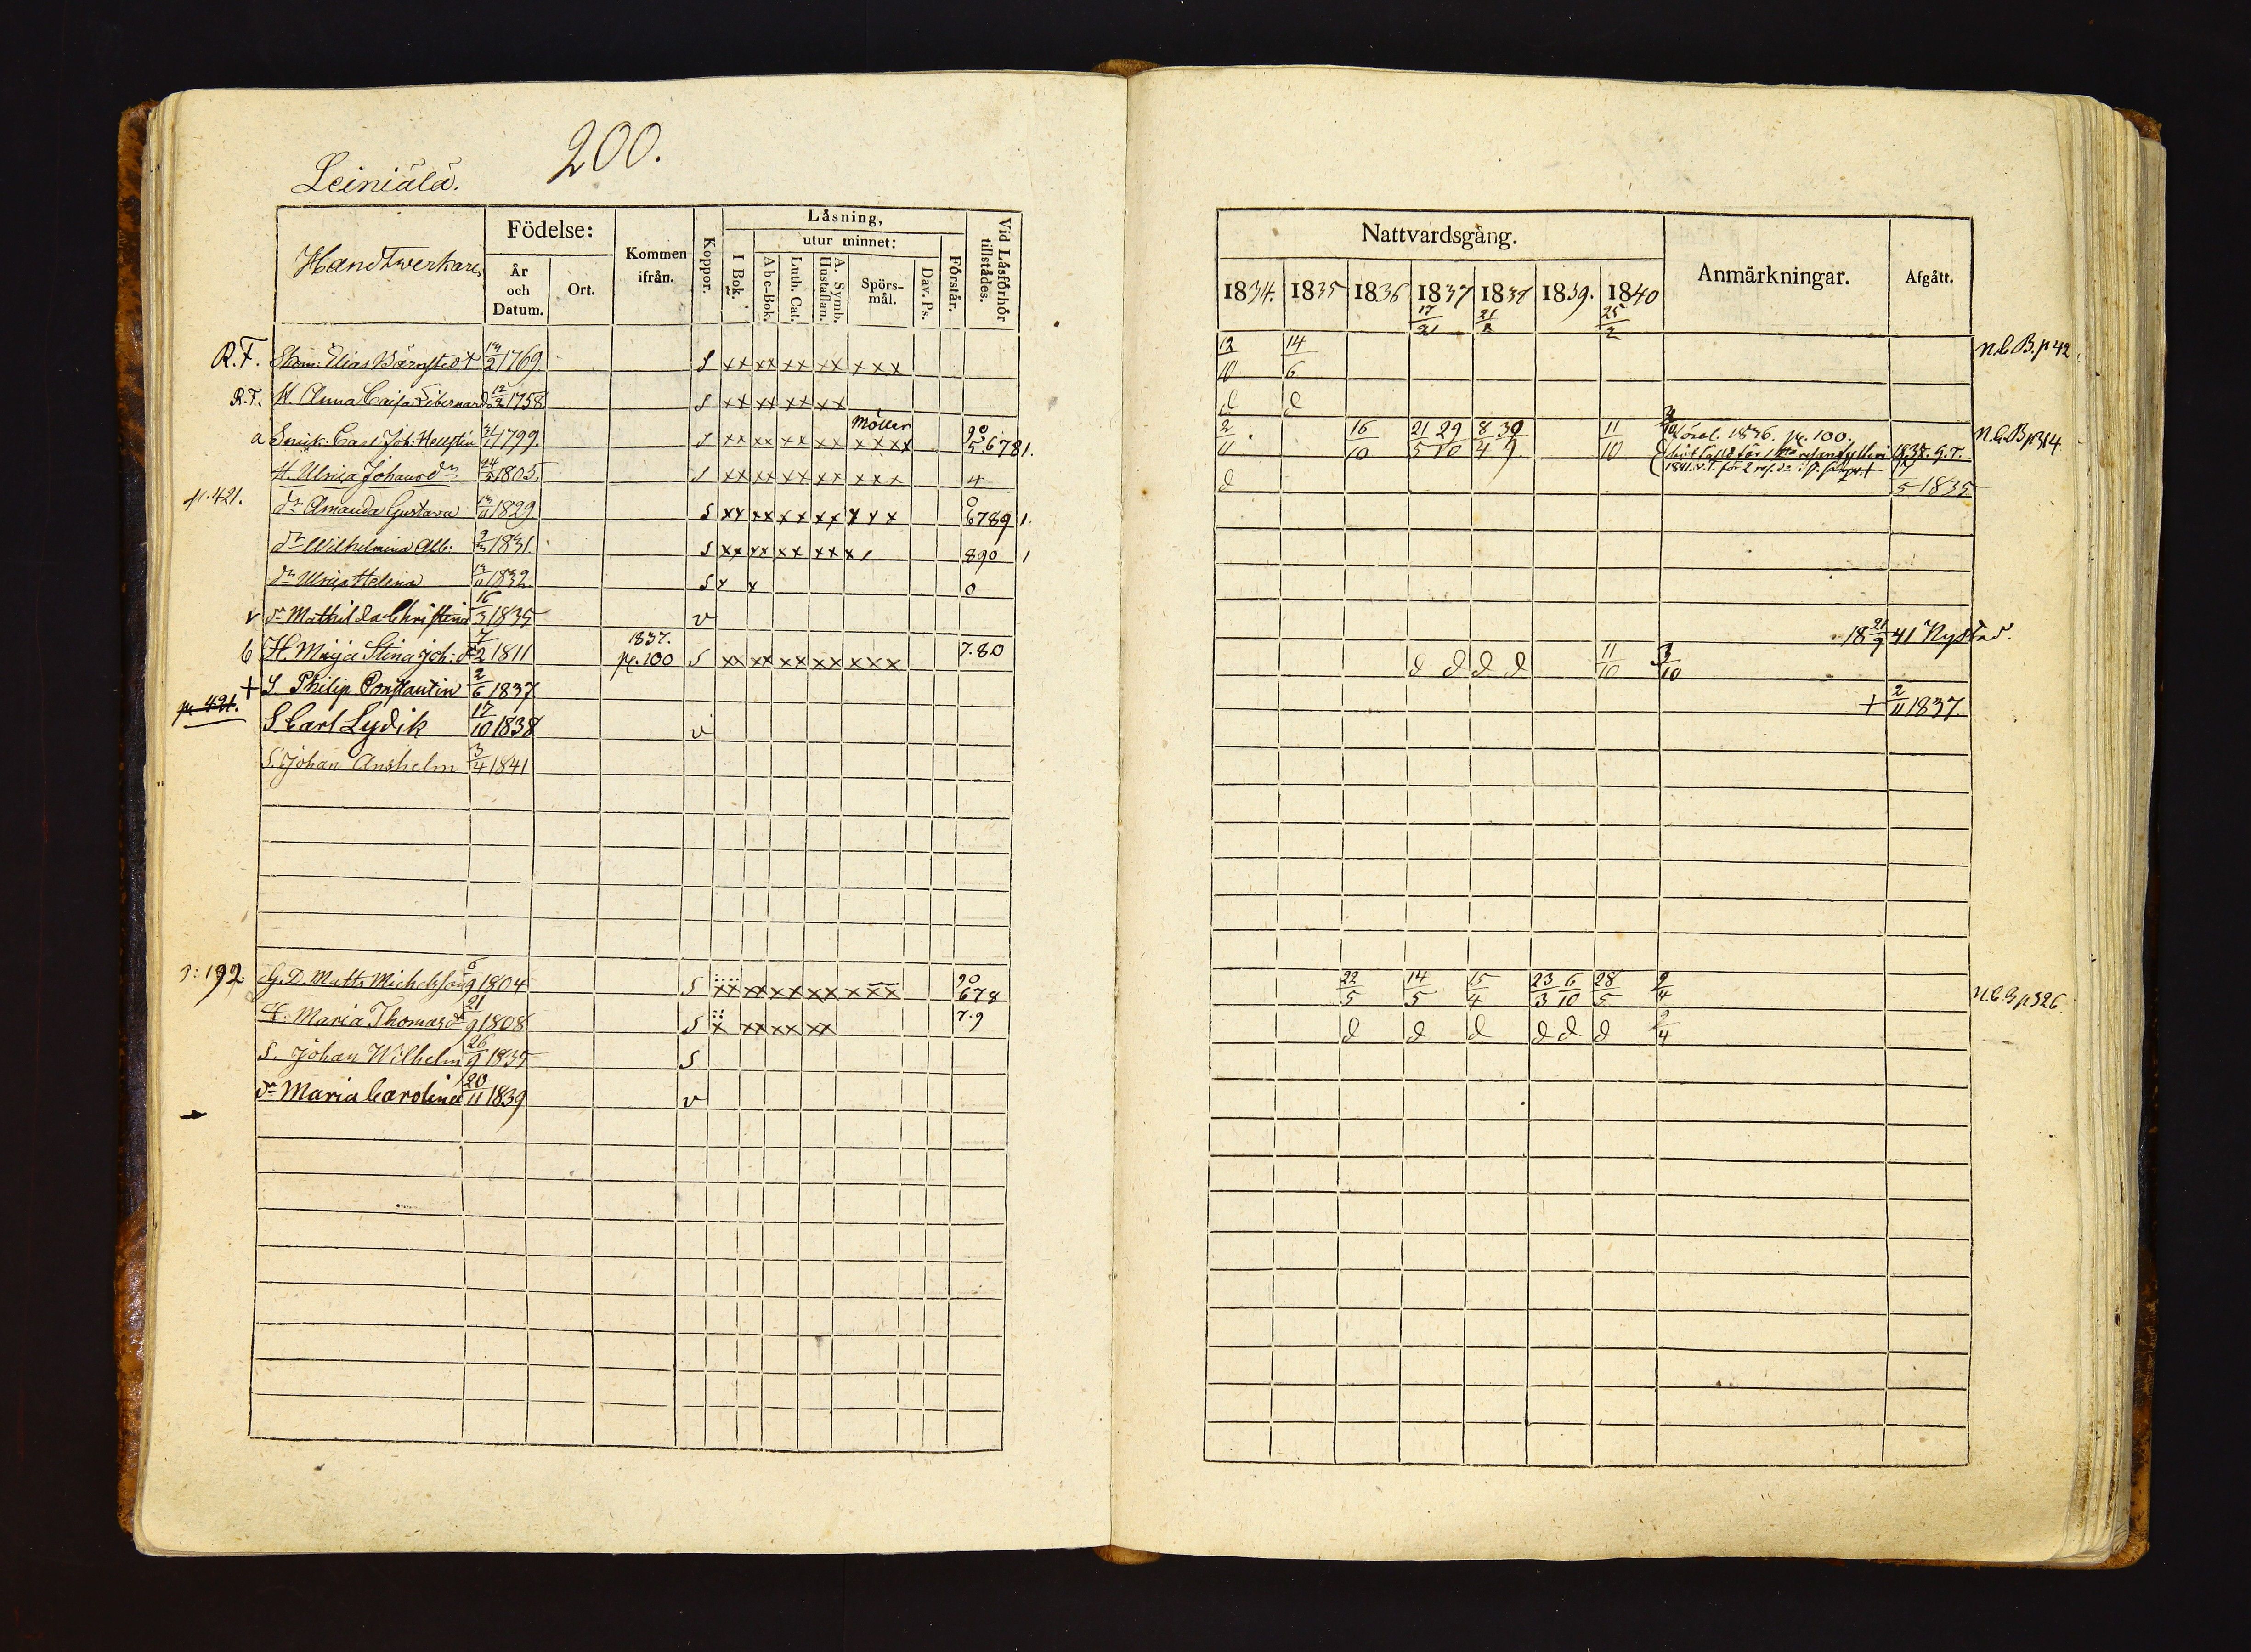 200.
Leiniälä.
Handtwerkare
Födelse:
År och Datum.
Ort.
Kommen ifrån.
Koppor.
Låsning,
I Bok.
utur minnet:
A b c-Bok.
Luth. Cat.
A. Symb. Hustaflan.
Spörsmål.
Dav. Ps.
Förstår.
Vid Låsförhör tillstådes.
R.F. Skom: Elias Bärnstedt 13/2 1769 S xx xx xx xx xxx
R.F. H. Anna Caisa 12/2 1758 S xx xx xx xx
a Snick. Carl Joh. Hellstén 31/1 1799. S xx xx xx xx xxxx Möller 90 5 6781.
H. Ulrica Johansdr 1805. S xx xx xx xx xxx 4
p. 421. dr Amanda Gustava 13/11 1829 S xx xx xx xx xxx 0 6789 1.
dr Wilhelmina Alb: 2/3 1831. S xx xx xx xxx 890 1
dr Ulrica Helena 1832. S x x 0
v dr Mathilda Christina 16/3 1835 v
b H. Maja Stina Joh: dr 7/2 1811 1837. p. 100 S xx xx xx xx xxx 7.80
+ S Philip Constantin 2/6 1837
p. 421. S. Carl Lydik 17/10 1838 v
S. Johan Anshelm 3/4 1841
p: 192 G. D. Matts Michelsson 6/9 1804 S xx xx xx xx xxx 90 678
H. Maria Thomasdr 21/9 1808 S x xx xx xx 7.9
S. Johan Wilhelm 26/9 1835 S
dr Maria Carolina 20/11 1839 v
Nattvardsgång.
Anmärkningar.
Afgått.
1834. 1835 1836 1837 1838 1839. 1840
17/21 21/2 25/2
12/10 14/6 N.C.B. p 42
d d
2/11 16/10 21/5 29/10 8/4 30/9 11/10 förel. 1836. p. 100. N.C.B p 314
1838. G.T.
d 17/5 1835
18 21/9 41 Nystad.
d d d d 11/10 3/10
+ 2/11 1837.
22/5 14/5 15/4 23/3 6/10 28/5 9/4 N.C.B p 326
d d d d d d 9/4